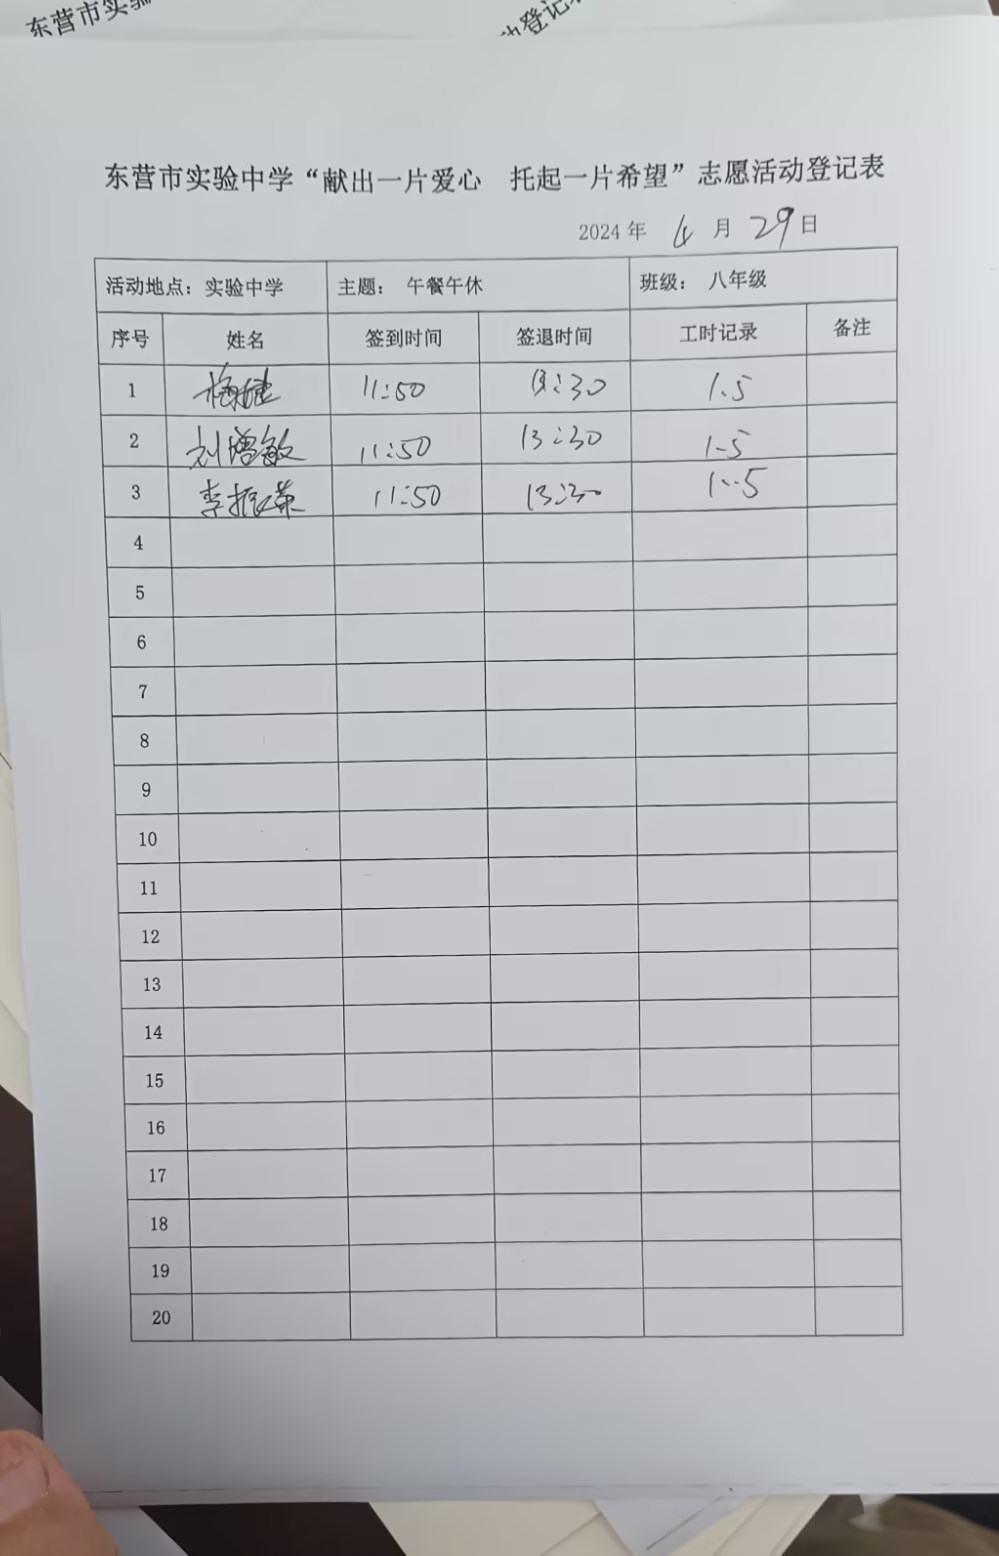 东营市实验
动登记表
东营市实验中学“献出一片爱心 托起一片希望”志愿活动登记表
2024 年 4 月 29 日
活动地点：实验中学 主题： 午餐午休 班级： 八年级
序号 姓名 签到时间 签退时间 工时记录 备注
1 11:50 13:30 1.5
2 刘增敏 11:50 13:30 1.5
3 李振荣 11:50 13:30 1.5
4
5
6
7
8
9
10
11
12
13
14
15
16
17
18
19
20